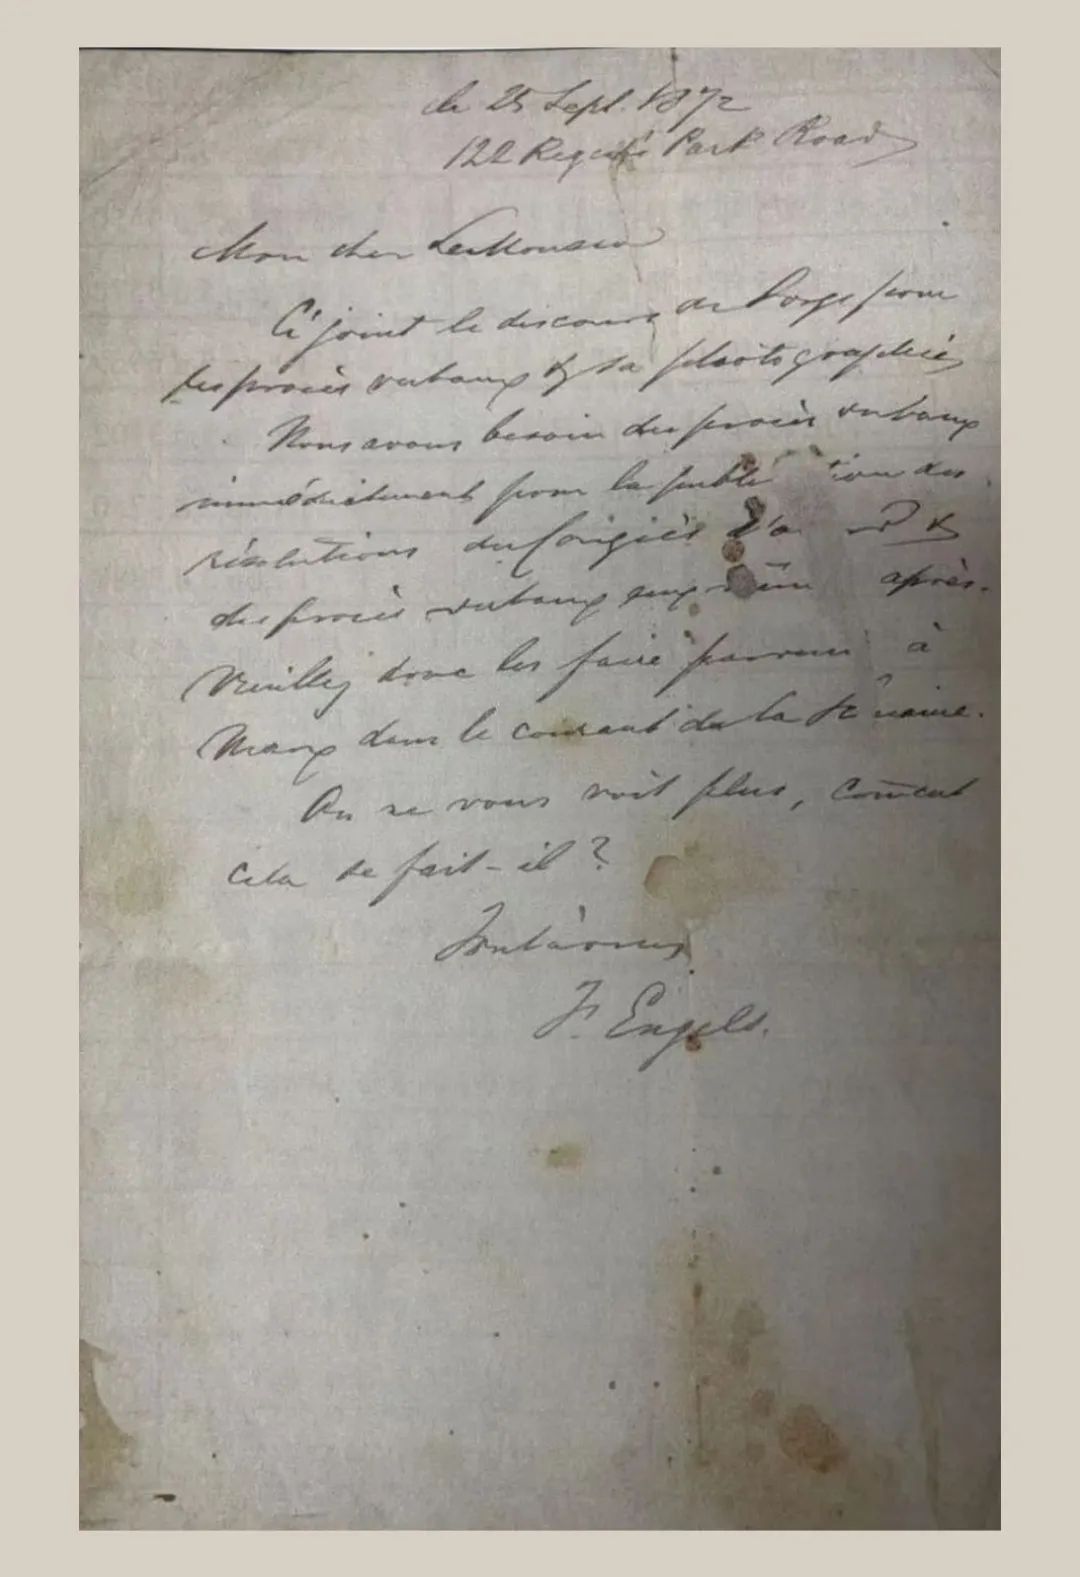 le 25 Sept. 1872
122 Regent's Park Road
Mon cher LeMoussu
Ci joint le discours de Sorge pour
les procès verbaux & sa photographie,
Nous avons besoin des procès verbaux
immédiatement pour la publi tion des
résolutions du Congrès d'a &
des procès verbaux eux même après.
Veuillez donc les faire parvenir à
Marx dans le courant de la se maine.
On ne vous voit plus, com̄ent
cela se fait-il?
Tout à vous
F. Engels.